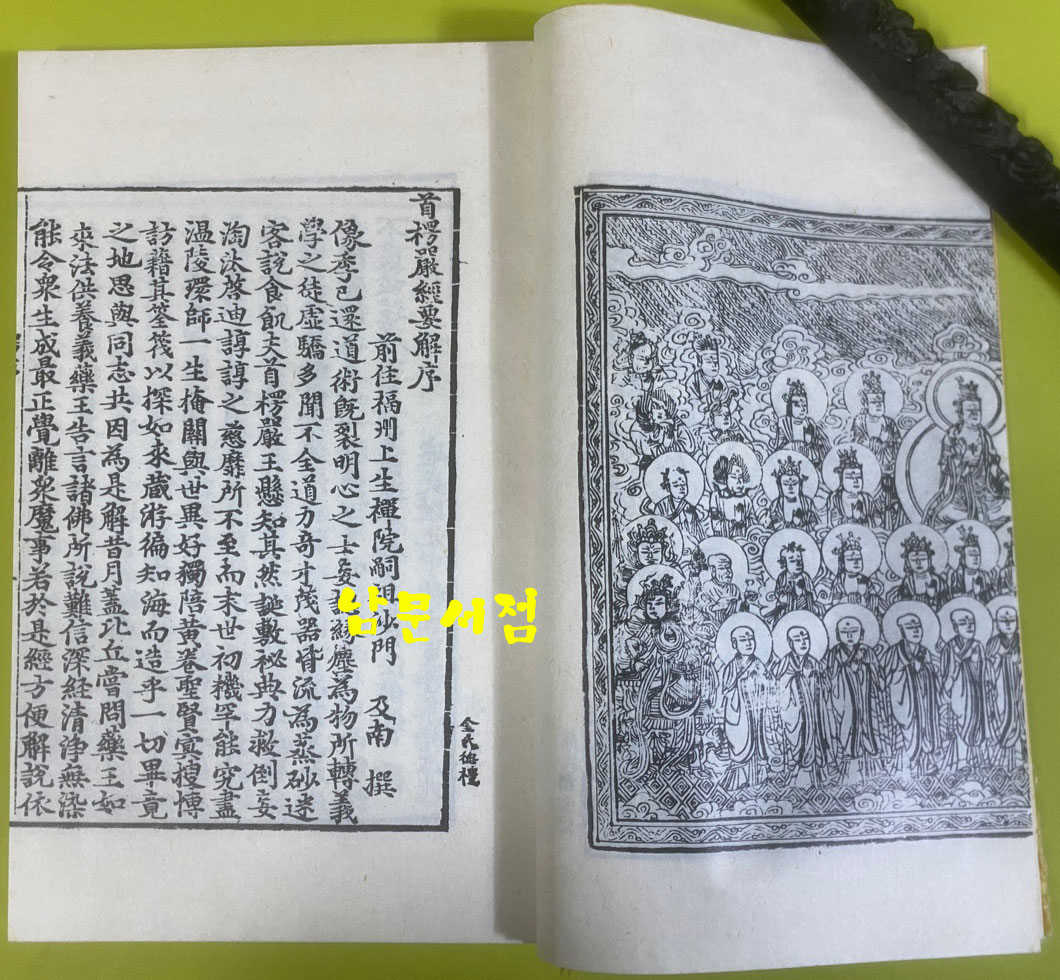 首楞嚴經要解序
前住福州上生禪院嗣祖沙門 及南 撰
像季已還道術旣裂明心之士妄認緣塵為物所轉義
學之徒虛驕多聞不全道力奇才茂器胥流為蒸砂迷
客說食飢夫首楞嚴王懸知其然誕敷秘典力救倒妄
淘汰啓迪諄諄之慈靡所不至而末世初機罕能究盡
温陵環師一生掩關與世異好獨陪黃卷聖賢冥搜博
訪藉其筌筏以探如來藏游徧知海而造乎一切畢竟
之地思與同志共因為是解昔月蓋比丘嘗問藥王如
來法供養義藥王告言諸佛所說難信深経清淨無染
能令衆生成最正覺離衆魔事若於是經方便解說依
남문서점